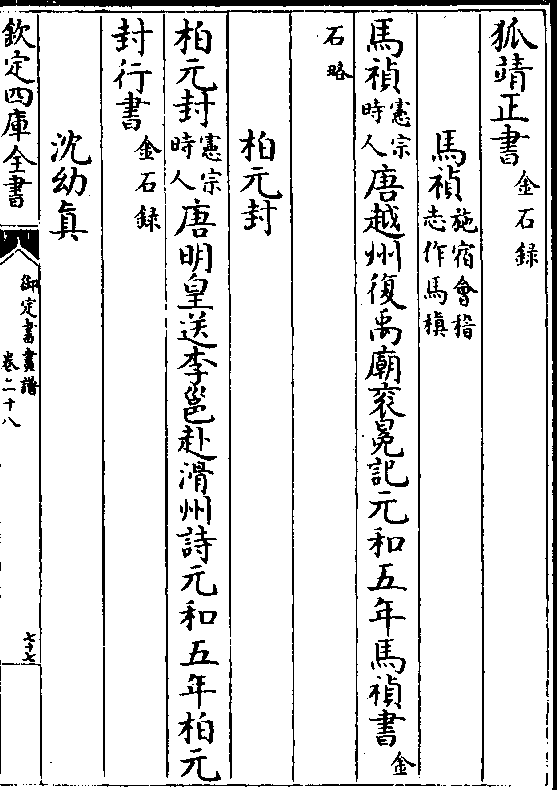 狐靖正書金石録
馬禎施宿會稽志作馬槙
馬禎憲宗時人唐越州復禹廟衮冕記元和五年馬禎書金
石略
柏元封
柏元封憲宗時人唐明皇送李邕赴滑州詩元和五年柏元
封行書金石録
沈幼真
欽定四庫全書
御定書畫譜
卷二十八
七十七